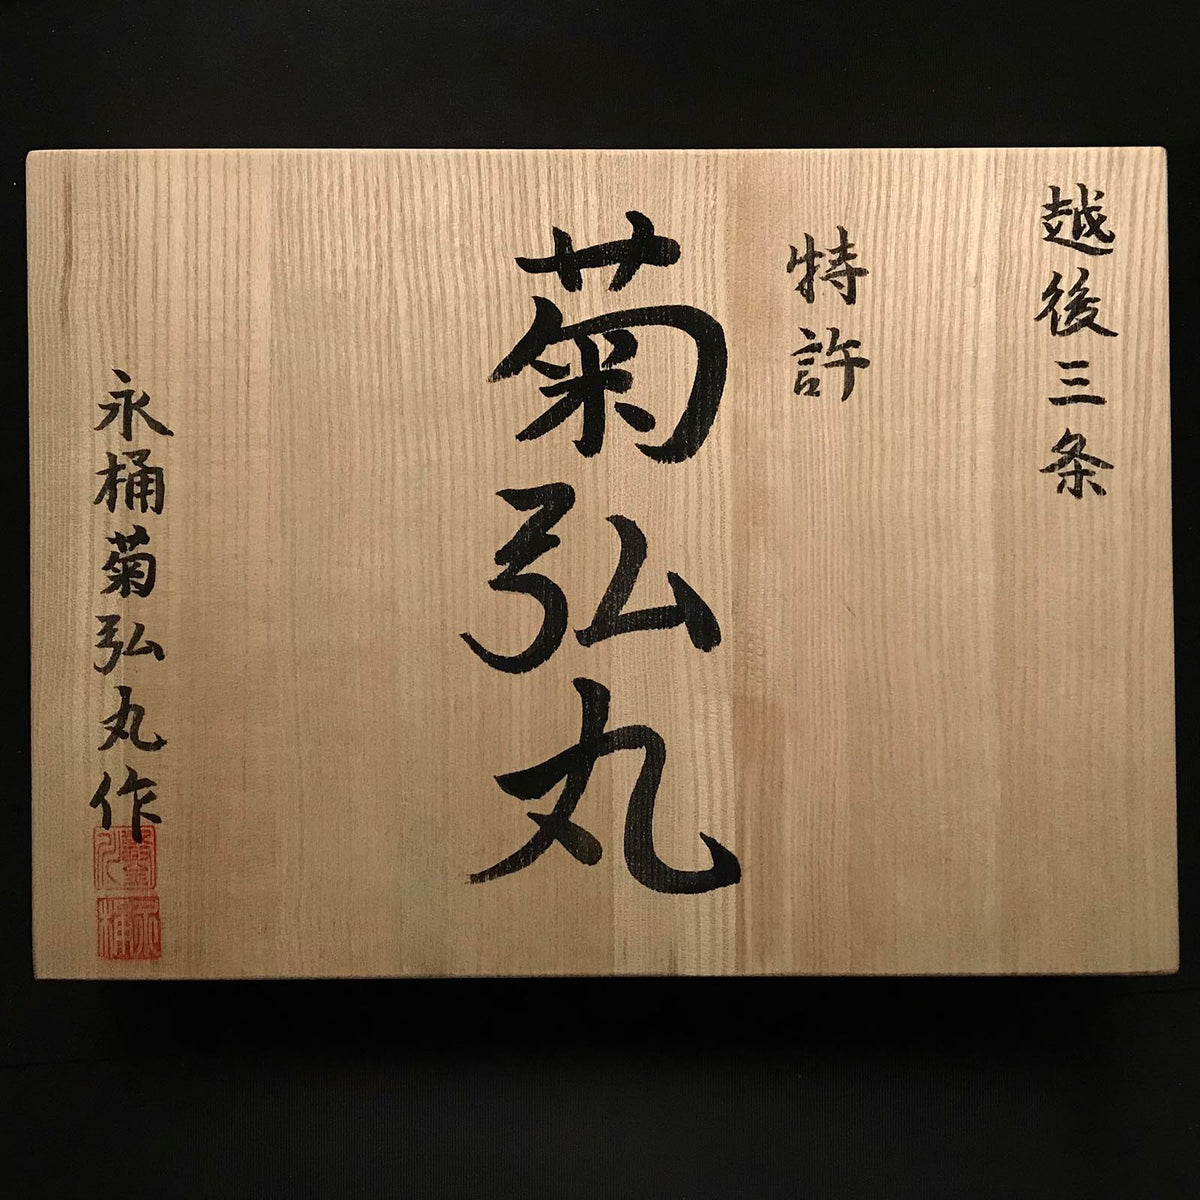 越後三条
特許
菊弘丸
永桶菊弘丸作